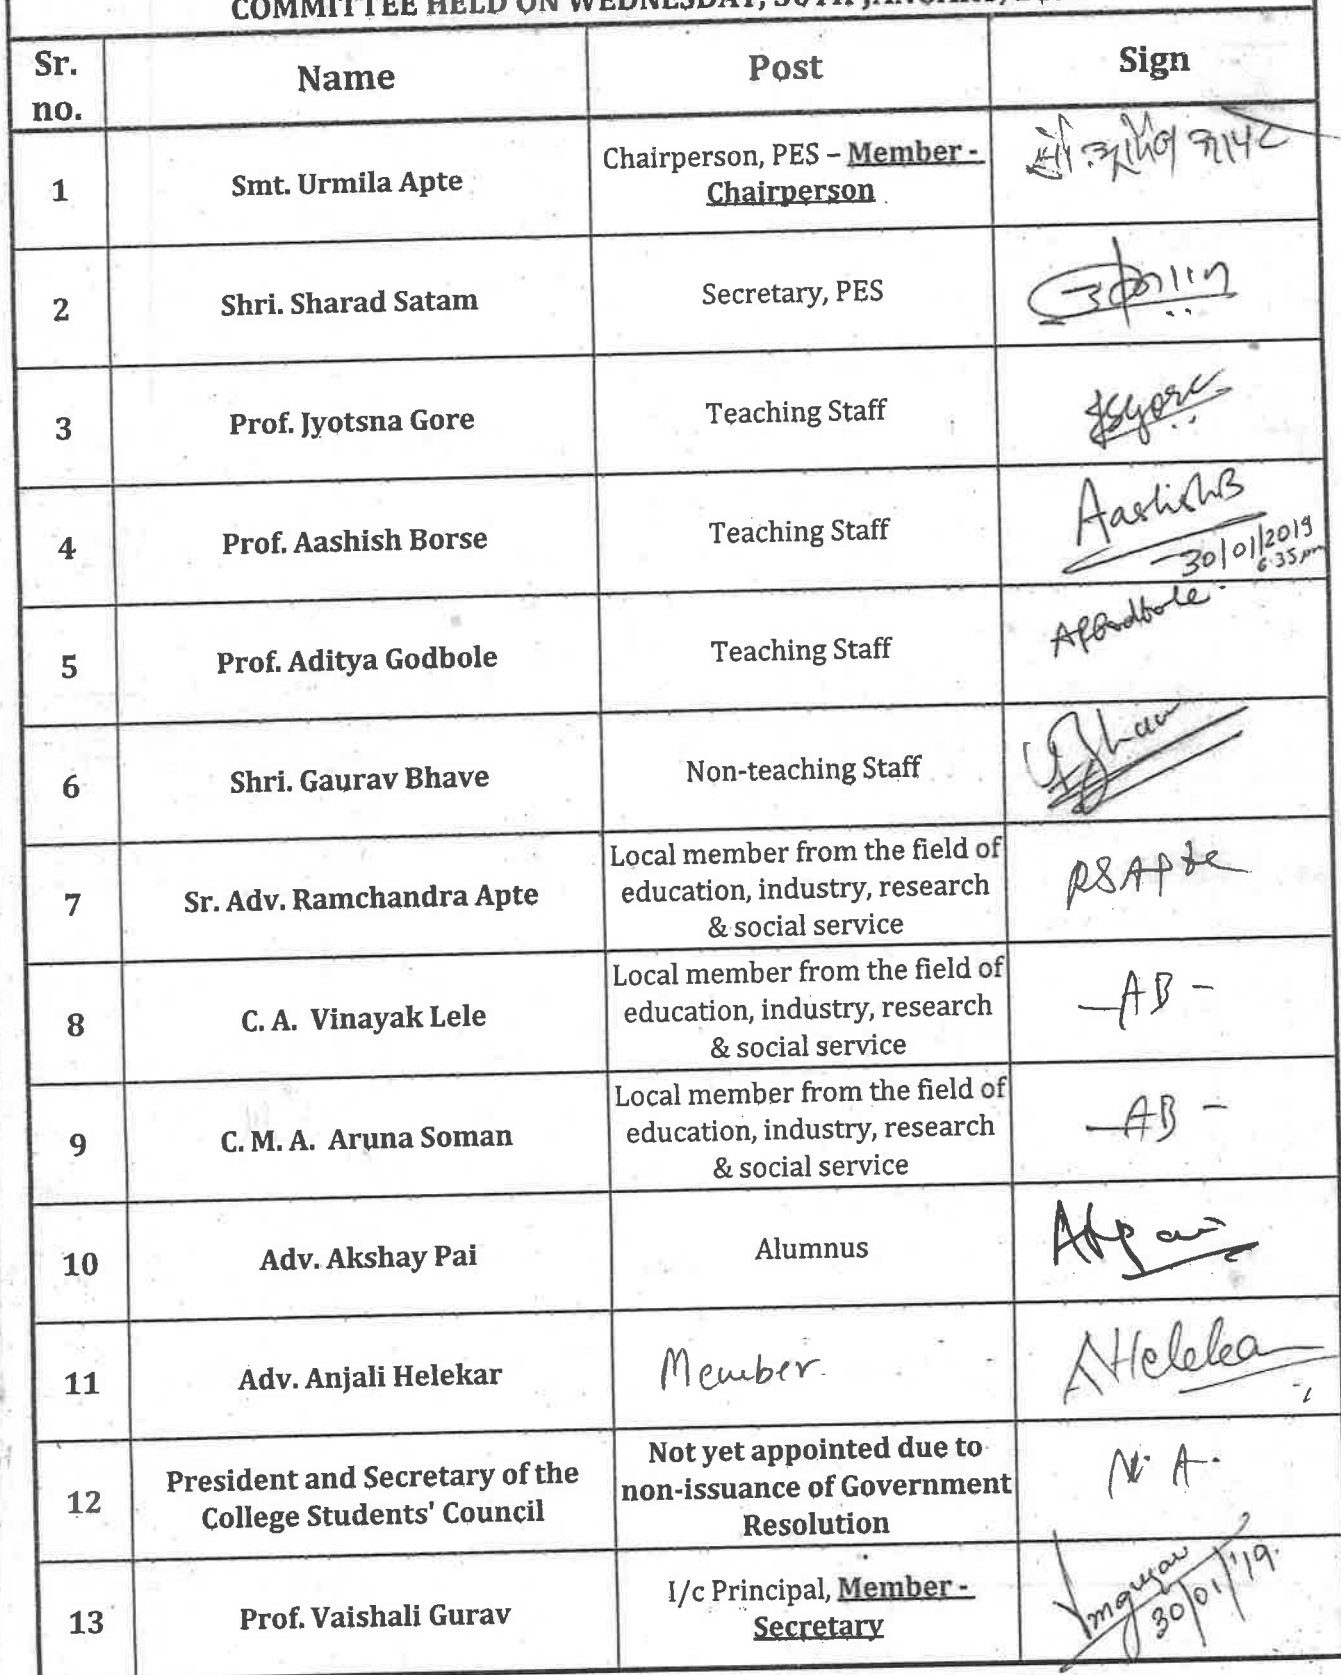 COMMITTEE HELD ON WEDNESDAY, 30TH JANUARY,
Sr. no. Name Post Sign
1 Smt. Urmila Apte Chairperson, PES – Member -
Chairperson
2 Shri. Sharad Satam Secretary, PES
3 Prof. Jyotsna Gore Teaching Staff
4 Prof. Aashish Borse Teaching Staff AashishB
30/01/2019
6:35 pm
5 Prof. Aditya Godbole Teaching Staff
6 Shri. Gaurav Bhave Non-teaching Staff
7 Sr. Adv. Ramchandra Apte Local member from the field of
education, industry, research
& social service
RSApte
8 C. A. Vinayak Lele Local member from the field of
education, industry, research
& social service
—AB -
9 C. M. A. Aruna Soman Local member from the field of
education, industry, research
& social service
—AB -
10 Adv. Akshay Pai Alumnus
11 Adv. Anjali Helekar Member. AHelekar
12 President and Secretary of the
College Students' Council
Not yet appointed due to
non-issuance of Government
Resolution
N. A.
13 Prof. Vaishali Gurav I/c Principal, Member -
Secretary
30/01/'19.